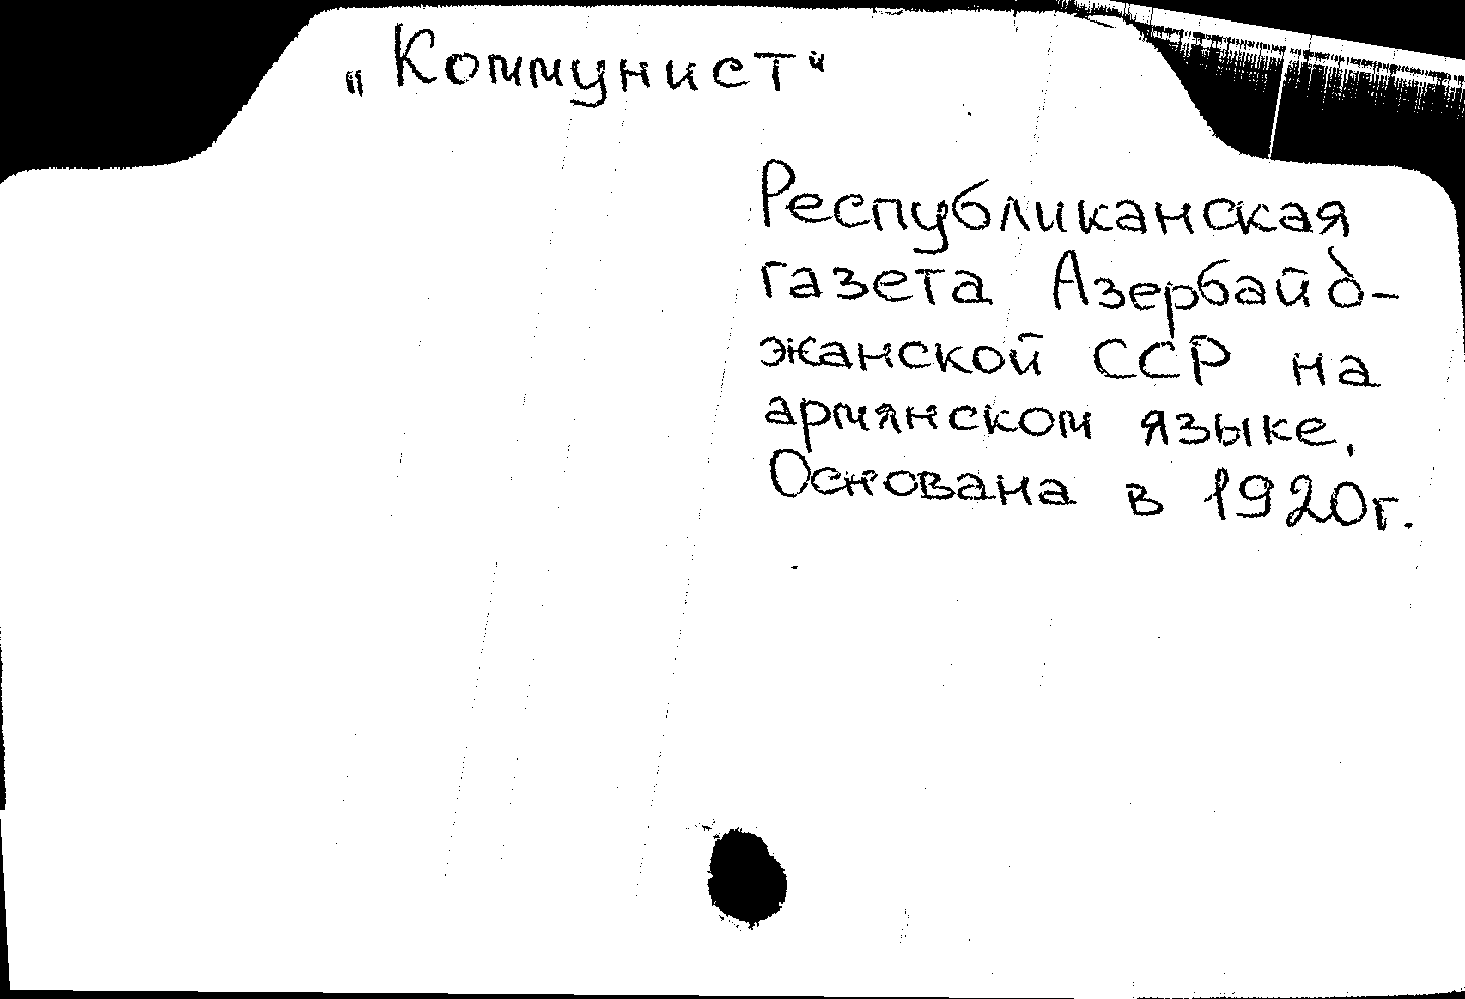 „Коммунист“
Республиканская
газета Азербайд-
жанской ССР на
армянском языке.
Основана в 1920г.